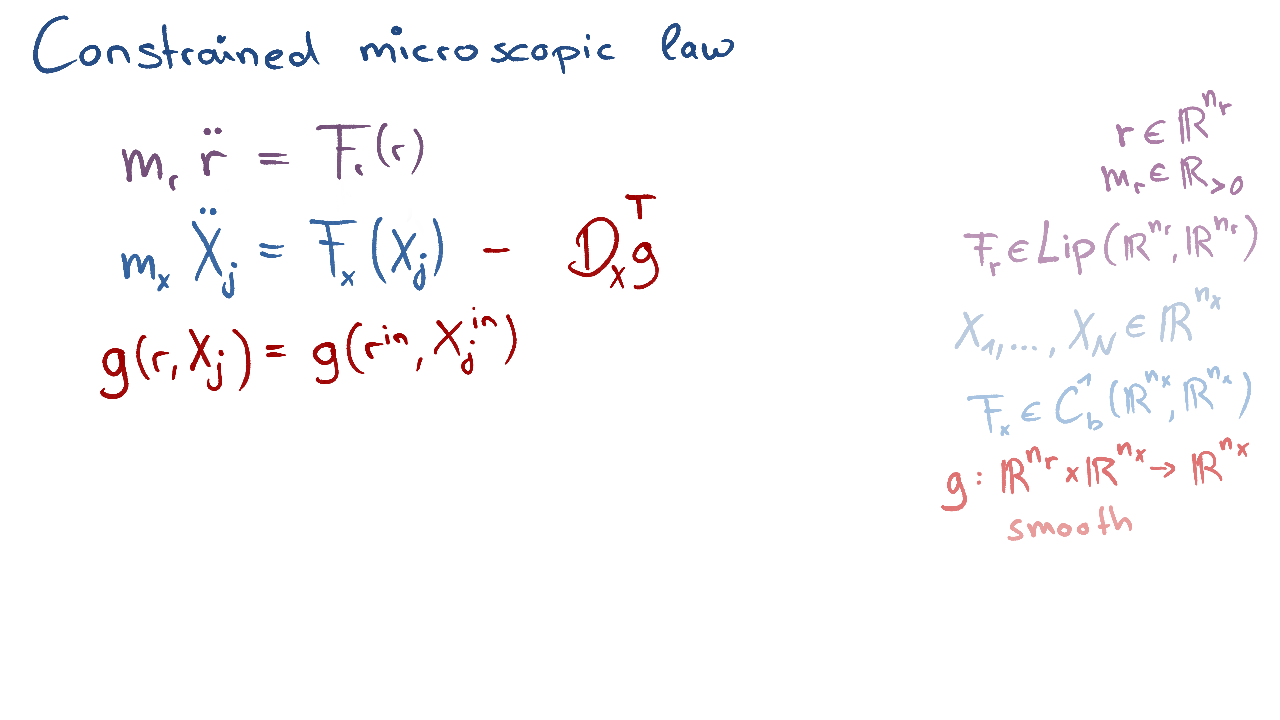 Constrained microscopic law
mᵣ r̈ = Fᵣ(r)
mₓ Ẍⱼ = Fₓ(Xⱼ) − Dₓᵀg
g(r, Xⱼ) = g(rⁱⁿ, Xⱼⁱⁿ)
r ∈ ℝⁿʳ
mᵣ ∈ ℝ_{>0}
Fᵣ ∈ Lip(ℝⁿʳ, ℝⁿʳ)
X₁, ..., X_N ∈ ℝⁿˣ
Fₓ ∈ C¹_b(ℝⁿˣ, ℝⁿˣ)
g : ℝⁿʳ × ℝⁿˣ → ℝⁿˣ
smooth